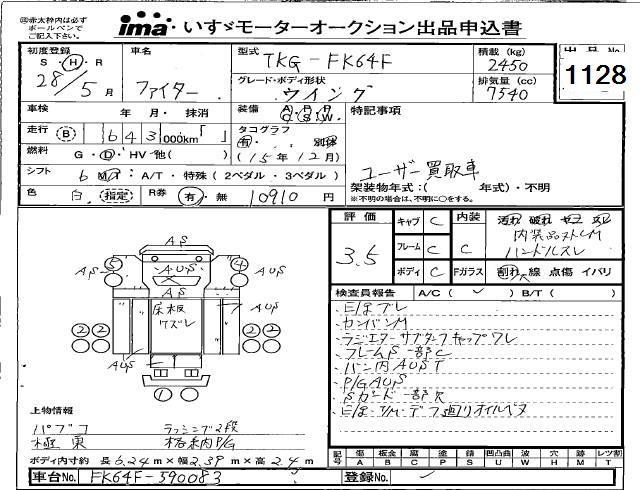 ◎赤太枠内は必ずボールペンでご記入下さい。
ima いすゞモーターオークション出品申込書
初度登録 S・H・R 28/5月
車名 ファイター
型式 TKG-FK64F
積載 (kg) 2450
出品No 1128
グレード・ボディ形状 ウイング
排気量 (cc) 7540
車検 年・月・抹消
装備 A・P・R C・S・W
特記事項
走行 B 643,000km「 」
タコグラフ 有・別体
(15年12月)
燃料 G・D・HV・他( )
ユーザー買取車
シフト 6 MT・A/T・特殊(2ペダル・3ペダル)
架装物年式:( 年式)・不明
※不明の場合は、不明に○をする。
色 白 指定 R券 有・無 10910円
評価 3.5
キャブ C 内装 C 汚れ 破れ
フレーム C 内装品ストレM
ハンドルスレ
ボディ C Fガラス 割れ・線 点傷 イバリ
検査員報告 A/C( ✓ ) B/T( )
・カンバンM
・ラジエターサブタンクキャップワレ
・フレームS一部C
・バン内AUST
・P/G AUS
・Sガード一部欠
AS
AUS
床板
ワズレ
AUS
AS
5
4
2 2
2 2
1
上物情報
パブコ ラッシング2段
極東 格納P/G
ボディ内寸約 長6.24m×幅2.39m×高2.4m
記号 傷A 板金B 腐C 塗P 錆S 凹凸曲U 波W 穴H 跡M レツ割T
車台No. FK64F-590083 登録No.